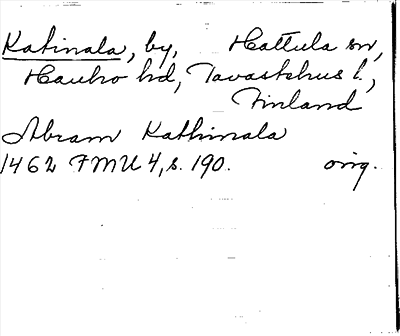 Katinala, by, Hattula sn,
Hauho hd, Tavastehus l.,
Finland
Abram Kathinala
1462 FMU 4, s. 190. orig.